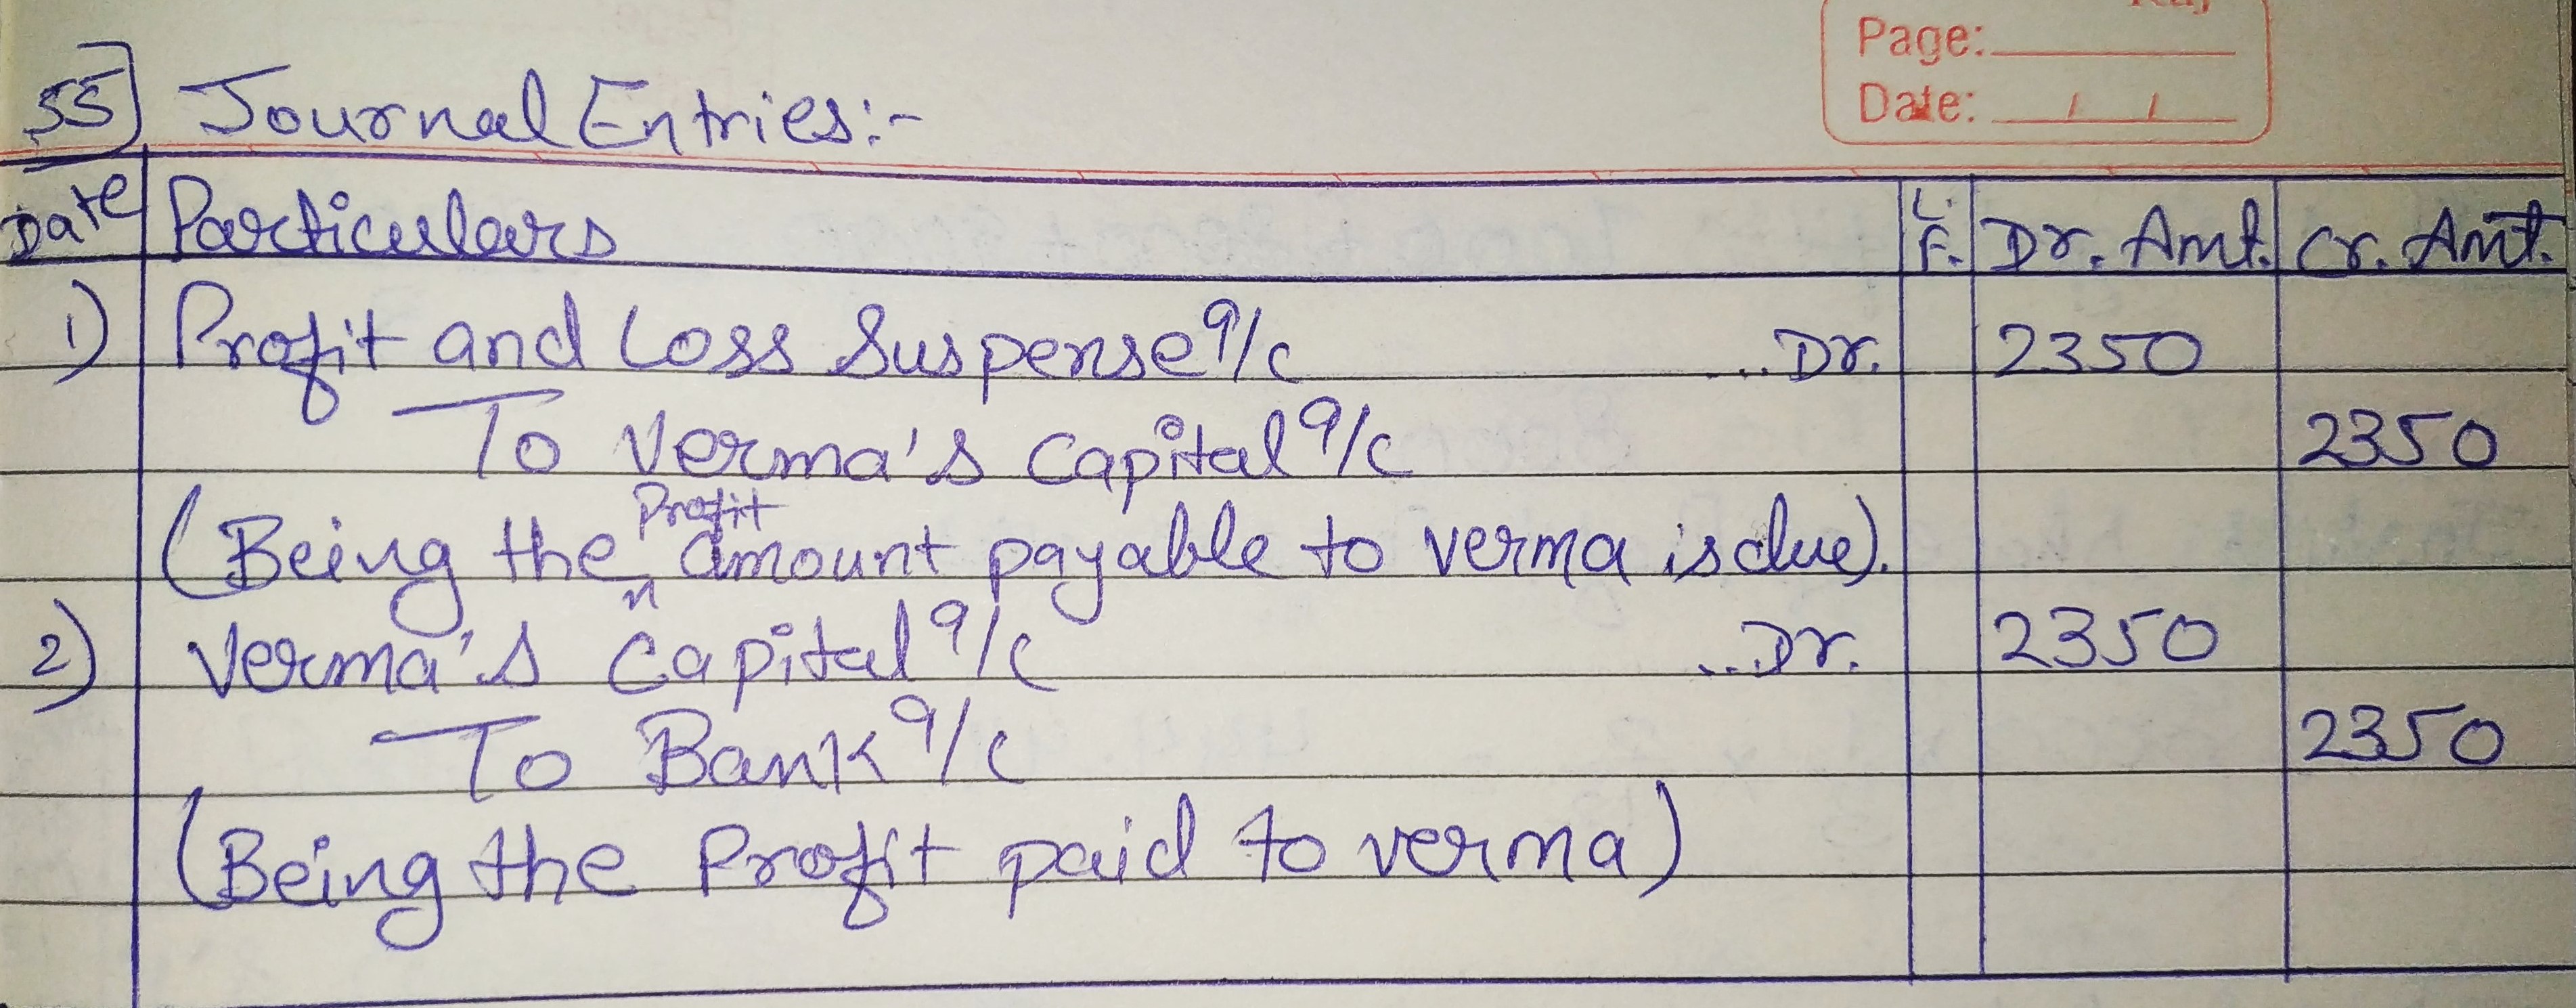 Page:
Date: / /
55] Journal Entries:-
Date Particulars L.F. Dr. Amt. Cr. Amt.
1) Profit and Loss Suspense a/c ...Dr. 2350
To Verma's Capital a/c 2350
(Being the Profit amount payable to verma is due).
2) Verma's Capital a/c ...Dr. 2350
To Bank a/c 2350
(Being the Profit paid to verma)